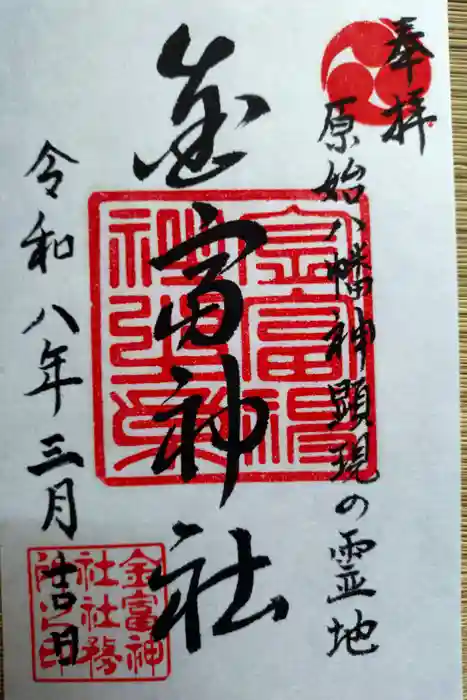 奉拝
原始八幡神顕現の霊地
金富神社
令和八年三月吉日
金富神
社社務
所之印